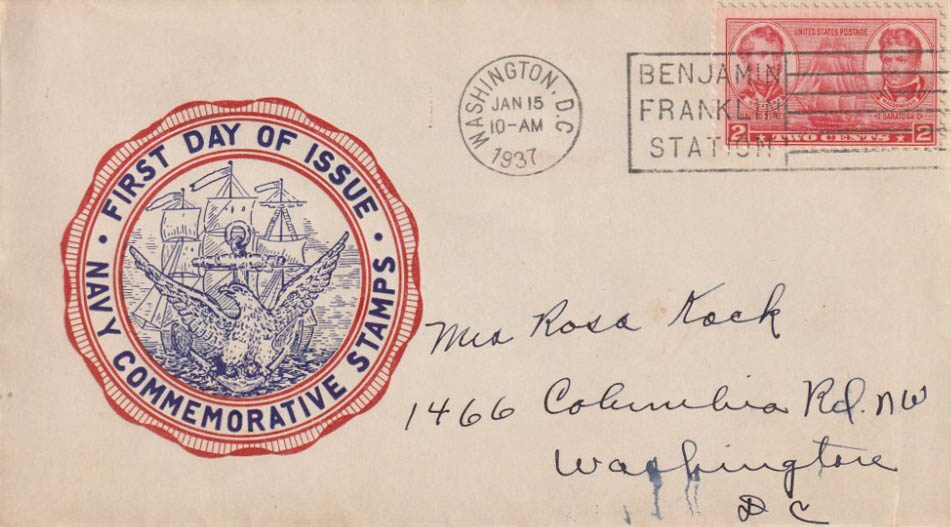 FIRST DAY OF ISSUE
NAVY COMMEMORATIVE STAMPS
WASHINGTON, D.C
JAN 15
10-AM
1937
BENJAMIN
FRANKLIN
STATION
UNITED STATES POSTAGE
SARATOGA
2 TWO CENTS 2
Mrs Rosa Kock
1466 Columbia Rd. NW
Washington
D C